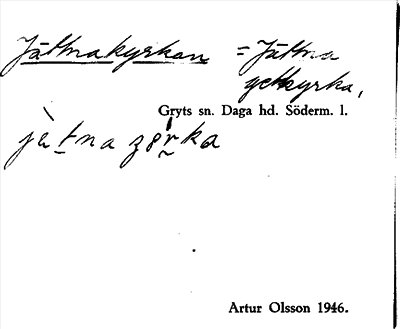 Jättnakyrkan = Jättna
gets​kyrka,
Gryts sn. Daga hd. Söderm. l.
Artur Olsson 1946.